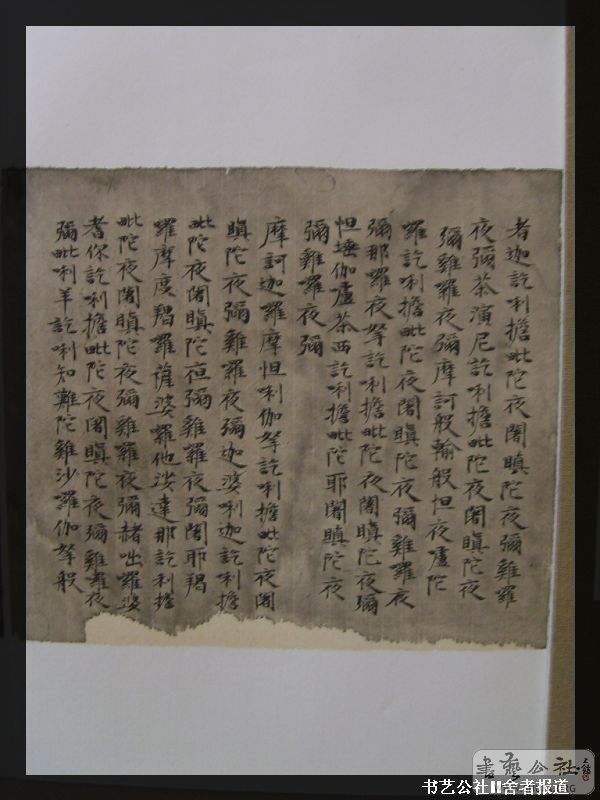 者迦訖唎擔毗陀夜闍瞋陀夜彌雞羅
夜彌茶演尼訖唎擔毗陀夜闍瞋陀夜
彌雞羅夜彌摩訶般輸般怛夜盧陀
羅訖唎擔毗陀夜闍瞋陀夜彌雞羅夜
彌那羅夜拏訖唎擔毗陀夜闍瞋陀夜彌
怛埵伽盧茶西訖唎擔毗陀耶闍瞋陀夜
彌雞羅夜彌
摩訶迦羅摩怛唎伽拏訖唎擔毗陀夜闍
瞋陀夜彌雞羅夜彌迦婆唎迦訖唎擔
毗陀夜闍瞋陀夜彌雞羅夜彌闍耶羯
羅摩度羯羅薩婆羅他娑達那訖利擔
毗陀夜闍瞋陀夜彌雞羅夜彌赭咄羅婆
耆你訖唎擔毗陀夜闍瞋陀夜彌雞羅夜
彌毗唎羊訖唎知難陀雞沙羅伽拏般
書藝公社
书艺公社II舍者报道